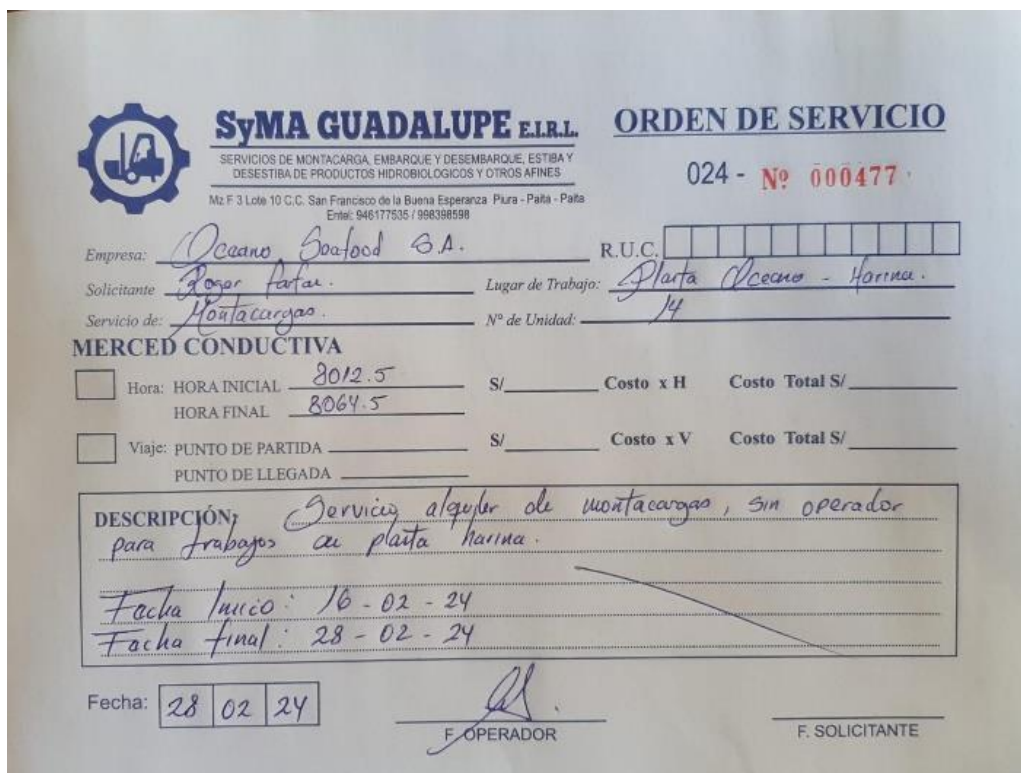 SyMA GUADALUPE E.I.R.L.
SERVICIOS DE MONTACARGA, EMBARQUE Y DESEMBARQUE, ESTIBA Y
DESESTIBA DE PRODUCTOS HIDROBIOLOGICOS Y OTROS AFINES
Mz F 3 Lote 10 C.C. San Francisco de la Buena Esperanza Piura - Paita - Paita
Entel: 946177535 / 998398598
ORDEN DE SERVICIO
024 - Nº 000477
Empresa: Oceano Seafood S.A. R.U.C.
Solicitante Roger Farfan. Lugar de Trabajo: Planta Oceano - Harina.
Servicio de: Montacargas. Nº de Unidad: 14
MERCED CONDUCTIVA
Hora: HORA INICIAL 8012.5 S/ Costo x H Costo Total S/
HORA FINAL 8064.5
Viaje: PUNTO DE PARTIDA S/ Costo x V Costo Total S/
PUNTO DE LLEGADA
DESCRIPCIÓN: Servicio alquiler de montacargas, sin operador
para trabajos en planta harina.
Facha Inicio: 16-02-24
Facha final: 28-02-24
Fecha: 28 02 24
F. OPERADOR
F. SOLICITANTE